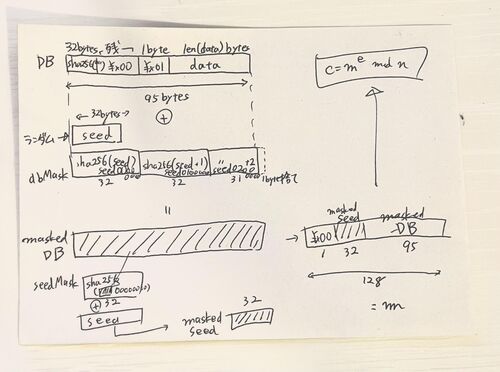 32bytes 残り 1byte len(data) bytes
DB sha256('') ¥x00 ¥x01 data
95 bytes
⊕
32bytes
ランダム→ seed
dbMask sha256(seed) sha256(seed+1)
32 32 31
1byte捨て
=
masked
DB
seedMask sha256
⊕ 32
seed
masked
seed
32
c = m^e mod n
masked
seed
masked
DB
→ ¥x00
1 32 95
128
= m